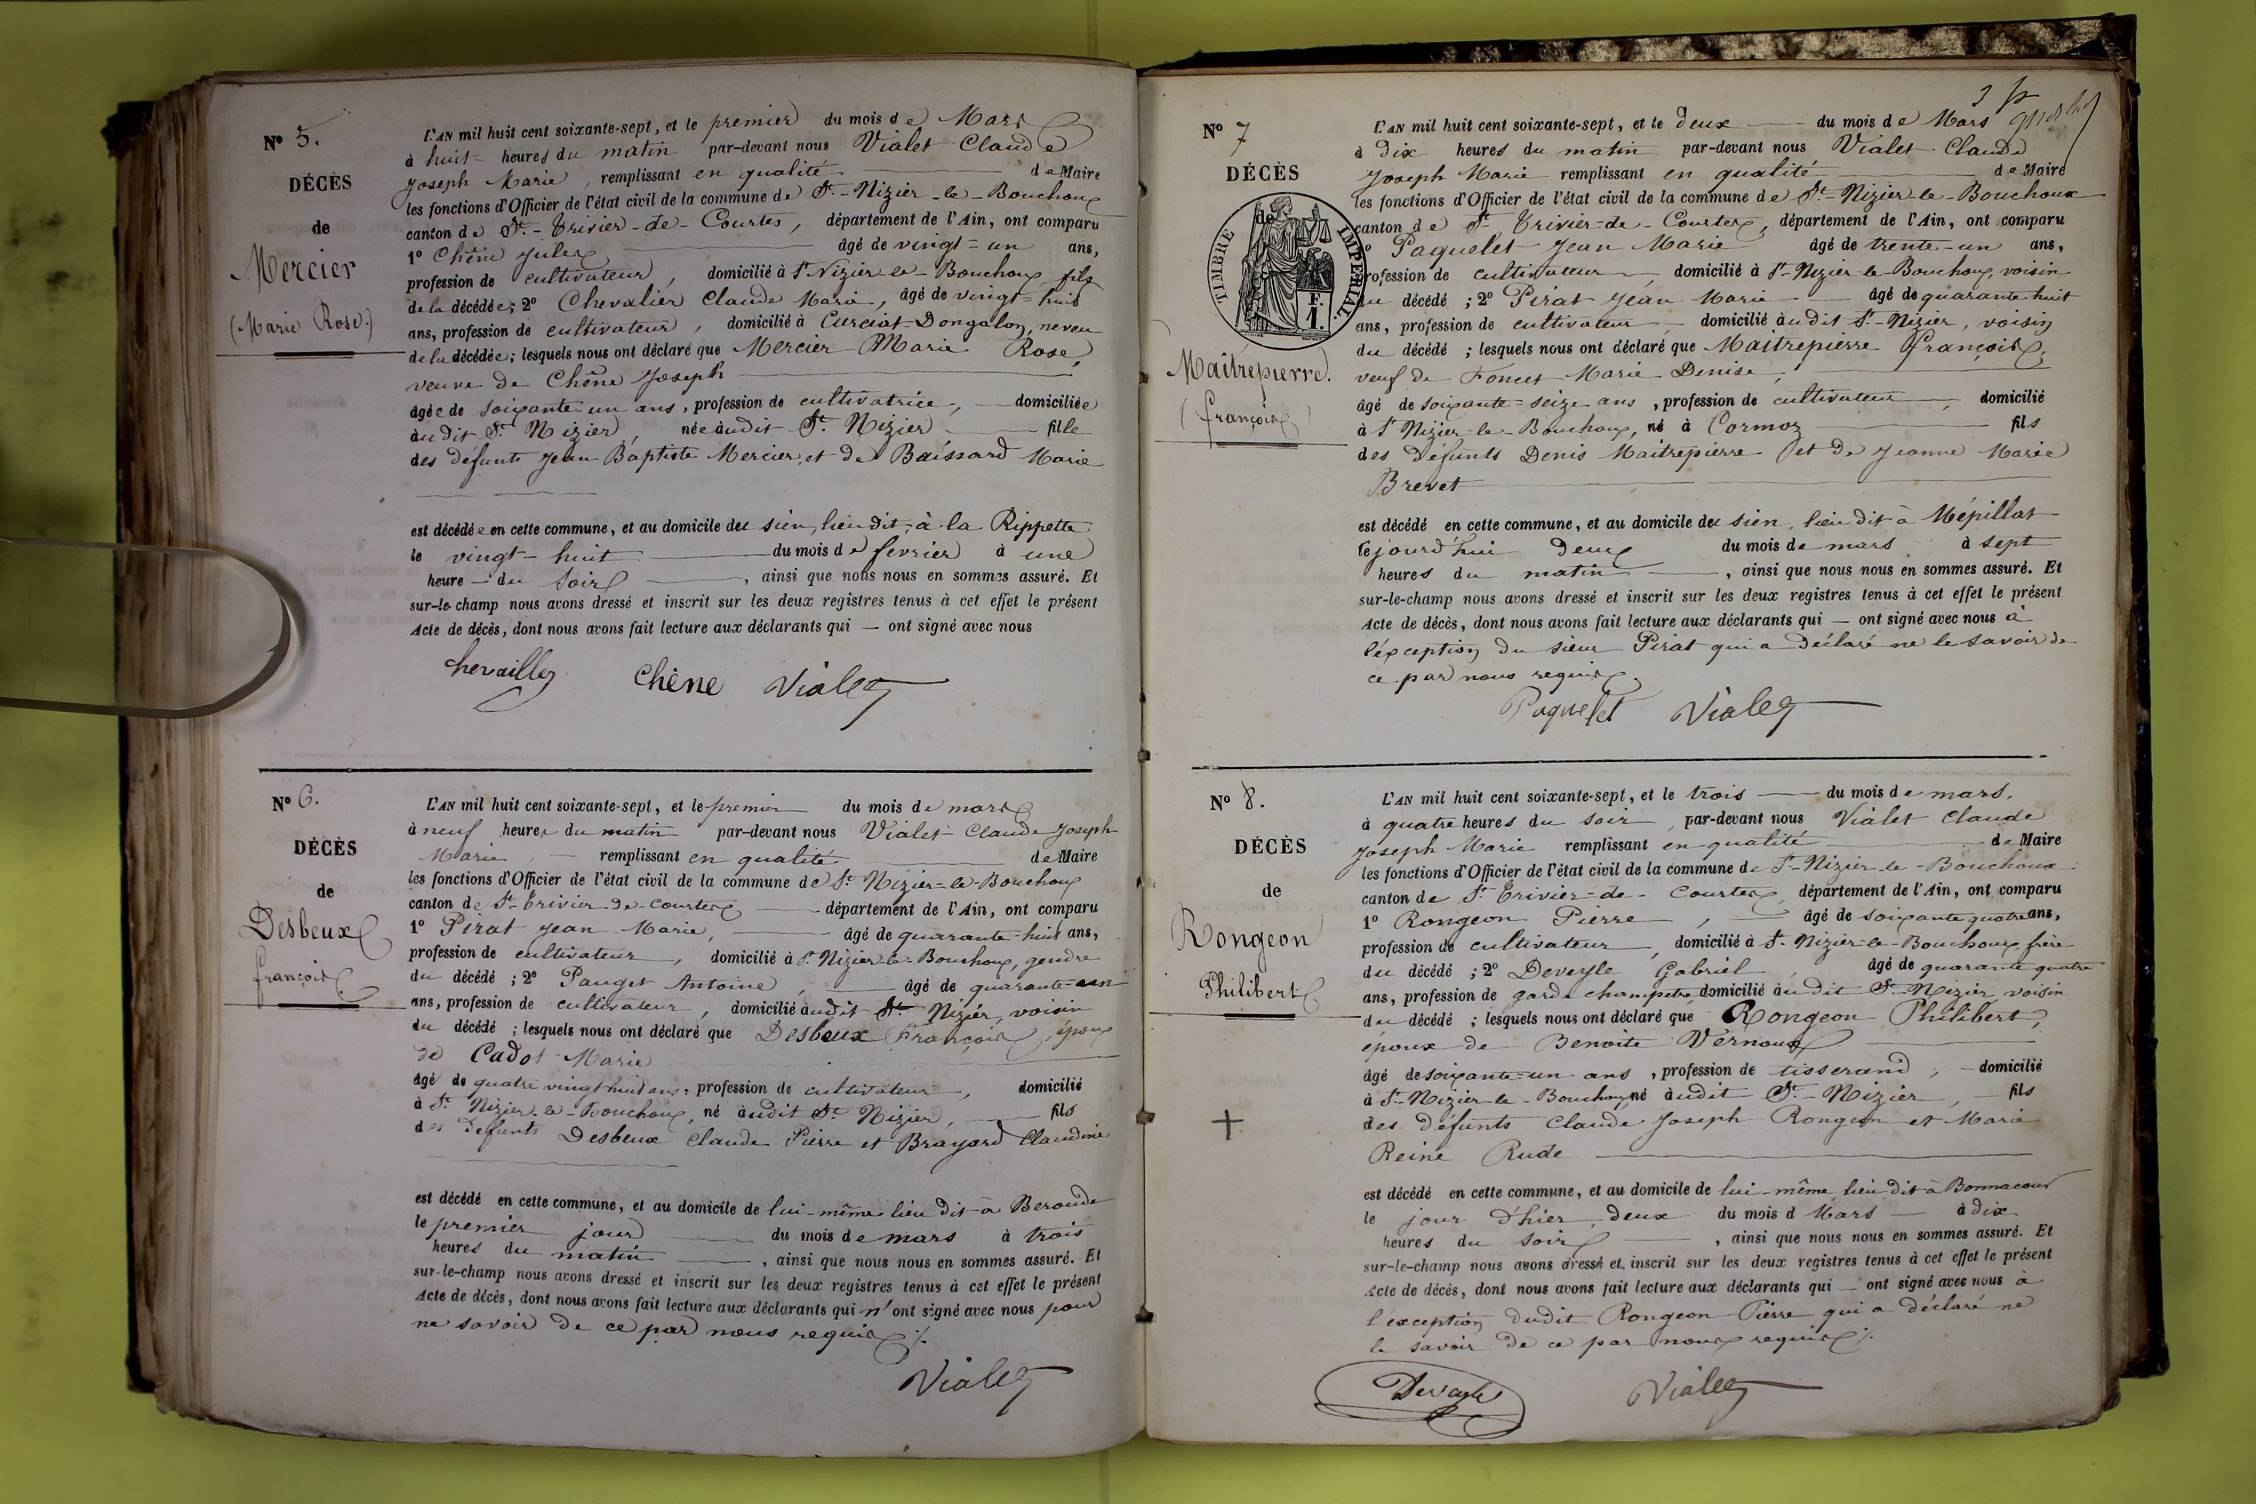 Nº 5.
DÉCÈS
de
Mercier
(Marie Rose.)
L'AN mil huit cent soixante-sept, et le premier du mois de Mars
à huit heures du matin par-devant nous Vialet Claude
Joseph Marie, remplissant en qualité de Maire
les fonctions d'Officier de l'état civil de la commune de St-Nizier-le-Bouchoux
canton de St-Trivier-de-Courtes, département de l'Ain, ont comparu
1º Chêne Jules âgé de vingt-un ans,
profession de cultivateur, domicilié à St Nizier-le-Bouchoux, fils
de la décédée; 2º Chevalier Claude Marie, âgé de vingt-huit
ans, profession de cultivateur, domicilié à Curciat-Dongalon, neveu
de la décédée; lesquels nous ont déclaré que Mercier Marie Rose,
veuve de Chêne Joseph
âgée de soixante-un ans, profession de cultivatrice, domiciliée
audit St Nizier, née audit St Nizier fille
des défunts Jean Baptiste Mercier et de Baissard Marie
est décédée en cette commune, et au domicile du sien, lieu dit, à la Rippette
le vingt-huit du mois de février à une
heure du soir, ainsi que nous nous en sommes assuré. Et
sur-le-champ nous avons dressé et inscrit sur les deux registres tenus à cet effet le présent
Acte de décès, dont nous avons fait lecture aux déclarants qui — ont signé avec nous
Chêne Vialet
Nº 6.
DÉCÈS
de
Desbeux
françois
L'AN mil huit cent soixante-sept, et le premier du mois de mars
à neuf heures du matin par-devant nous Vialet Claude Joseph
Marie, remplissant en qualité de Maire
les fonctions d'Officier de l'état civil de la commune de St Nizier-le-Bouchoux
canton de St-Trivier-de-Courtes département de l'Ain, ont comparu
1º Pirat Jean Marie, âgé de quarante-huit ans,
profession de cultivateur, domicilié à St Nizier-le-Bouchoux, gendre
du décédé; 2º Pauget Antoine, âgé de quarante-un
ans, profession de cultivateur, domicilié audit St Nizier, voisin
du décédé; lesquels nous ont déclaré que Desbeux François, époux
de Cadot Marie
âgé de quatre vingt huit ans, profession de cultivateur, domicilié
à St Nizier-le-Bouchoux, né audit St Nizier, fils
des défunts Desbeux Claude Pierre et Brayard Claudine
est décédé en cette commune, et au domicile de lui-même lieu dit à Beroude
le premier jour du mois de mars à trois
heures du matin, ainsi que nous nous en sommes assuré. Et
sur-le-champ nous avons dressé et inscrit sur les deux registres tenus à cet effet le présent
Acte de décès, dont nous avons fait lecture aux déclarants qui n'ont signé avec nous pour
ne savoir de ce par nous requis ./.
Vialet
3
Nº 7
DÉCÈS
de
TIMBRE IMPÉRIAL.
F.
1.
Maîtrepierre.
(françois)
L'AN mil huit cent soixante-sept, et le deux du mois de Mars
à dix heures du matin par-devant nous Vialet Claude
Joseph Marie remplissant en qualité de Maire
les fonctions d'Officier de l'état civil de la commune de St-Nizier-le-Bouchoux
canton de St Trivier-de-Courtes, département de l'Ain, ont comparu
1º Paquelet Jean Marie âgé de trente-un ans,
profession de cultivateur, domicilié à St-Nizier-le-Bouchoux, voisin
du décédé; 2º Pirat Jean Marie âgé de quarante huit
ans, profession de cultivateur domicilié audit St-Nizier, voisin
du décédé; lesquels nous ont déclaré que Maitrepierre françois,
veuf de Foncet Marie Denise,
âgé de soixante-seize ans, profession de cultivateur, domicilié
à St Nizier-le-Bouchoux, né à Cormoz fils
des défunts Denis Maitrepierre et de Jeanne Marie
Brevet
est décédé en cette commune, et au domicile du sien, lieu dit à Mépillat
le jourd'hui deux du mois de mars à sept
heures du matin, ainsi que nous nous en sommes assuré. Et
sur-le-champ nous avons dressé et inscrit sur les deux registres tenus à cet effet le présent
Acte de décès, dont nous avons fait lecture aux déclarants qui — ont signé avec nous à
l'exception du sieur Pirat qui a déclaré ne le savoir de
ce par nous requis.
Paquelet Vialet
Nº 8.
DÉCÈS
de
Rongeon
Philibert
+
L'AN mil huit cent soixante-sept, et le trois du mois de mars.
à quatre heures du soir, par-devant nous Vialet Claude
Joseph Marie remplissant en qualité de Maire
les fonctions d'Officier de l'état civil de la commune de St-Nizier-le-Bouchoux
canton de St Trivier-de-Courtes, département de l'Ain, ont comparu
1º Rongeon Pierre, âgé de soixante quatre ans,
profession de cultivateur, domicilié à St-Nizier-le-Bouchoux frère
du décédé; 2º Deveyle Gabriel, âgé de quarante quatre
ans, profession de garde champetre, domicilié audit St-Nizier, voisin
du décédé; lesquels nous ont déclaré que Rongeon Philibert,
époux de Benoite Vernoux
âgé de soixante-un ans, profession de tisserand, domicilié
à St-Nizier-le-Bouchoux, né audit St-Nizier, fils
des défunts Claude Joseph Rongeon et Marie
Reine Rude
est décédé en cette commune, et au domicile de lui-même lieu dit à Bonnacour
le jour d'hier, deux du mois d Mars à dix
heures du soir, ainsi que nous nous en sommes assuré. Et
sur-le-champ nous avons dressé et inscrit sur les deux registres tenus à cet effet le présent
Acte de décès, dont nous avons fait lecture aux déclarants qui — ont signé avec nous à
l'exception dudit Rongeon Pierre qui a déclaré ne
le savoir de ce par nous requis ./.
Vialet